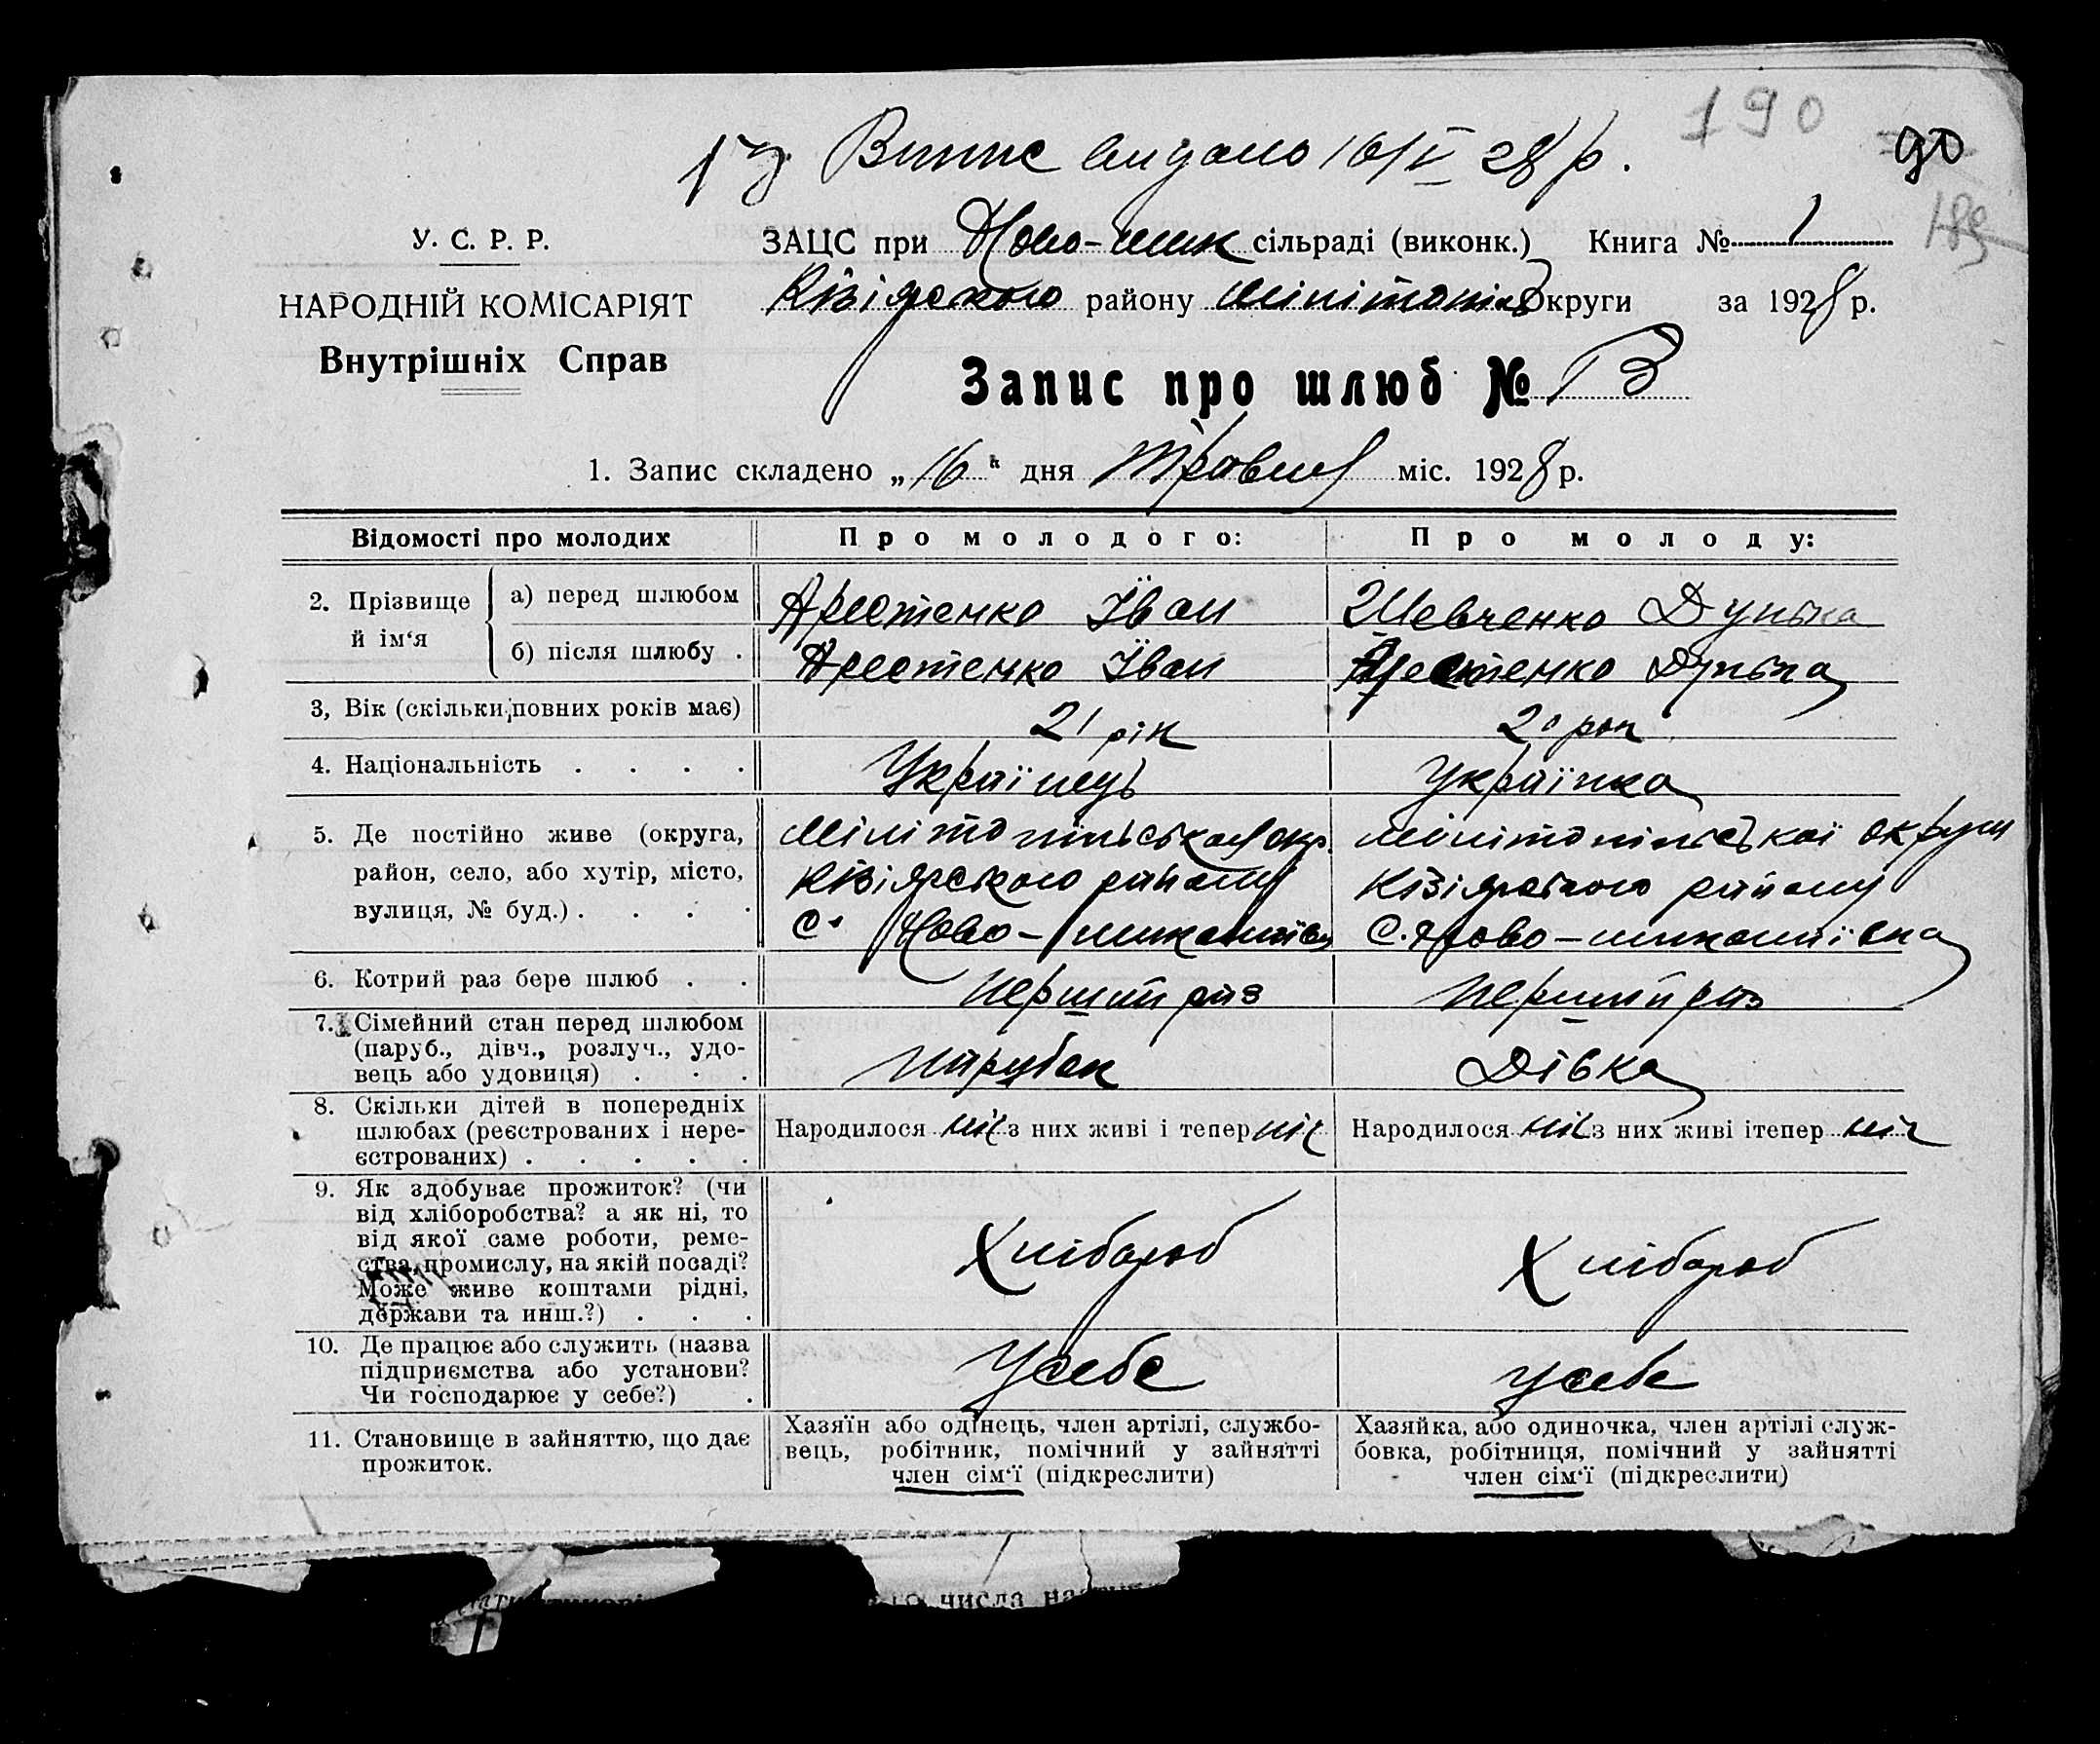 190
Випис видано 16/V 28 р.
90
189
У. С. Р. Р.
ЗАЦС при Ново-мик сільраді (виконк.) Книга № 1
НАРОДНІЙ КОМІСАРІЯТ
Кізіярського району Мілітопіль Округи за 1928 р.
Внутрішніх Справ
Запис про шлюб № 13
1. Запис складено „16“ дня Травня міс. 1928 р.
Відомості про молодих
Про молодого:
Про молоду:
2. Прізвище й ім‘я
а) перед шлюбом
Арестенко Їван
Шевченко Дунька
б) після шлюбу .
Арестенко Їван
Арестенко Дунька
3, Вік (скільки повних років має)
21 рік
20 рок
4. Національність . . . .
Українець
Українка
5. Де постійно живе (округа,
район, село, або хутір, місто,
вулиця, № буд.) . . . .
Мілітопільськая окр.
Кізіярського району
С. Ново-
Мілітопільської округи
Кізіярського району
С. Ново-миколаївка
6. Котрий раз бере шлюб . .
перший раз
перший раз
7. Сімейний стан перед шлюбом
(паруб., дівч., розлуч., удо-
вець або удовиця) . . .
парубок
Дівка
8. Скільки дітей в попередніх
шлюбах (реєстрованих і нере-
єстрованих) . . . . .
Народилося ніс з них живі і тепер ніс
Народилося ніс з них живі ітепер ніс
9. Як здобуває прожиток? (чи
від хліборобства? а як ні, то
від якої саме роботи, реме-
ства, промислу, на якій посаді?
Може живе коштами рідні,
держави та инш.?) . . .
Хлібороб
Хлібороб
10. Де працює або служить (назва
підприємства або установи?
Чи господарює у себе?) .
У себе
У себе
11. Становище в зайняттю, що дає
прожиток.
Хазяїн або одінець, член артілі, службо-
вець, робітник, помічний у зайнятті
член сім‘ї (підкреслити)
Хазяйка, або одиночка, член артілі служ-
бовка, робітниця, помічний у зайнятті
член сім‘ї (підкреслити)
числа